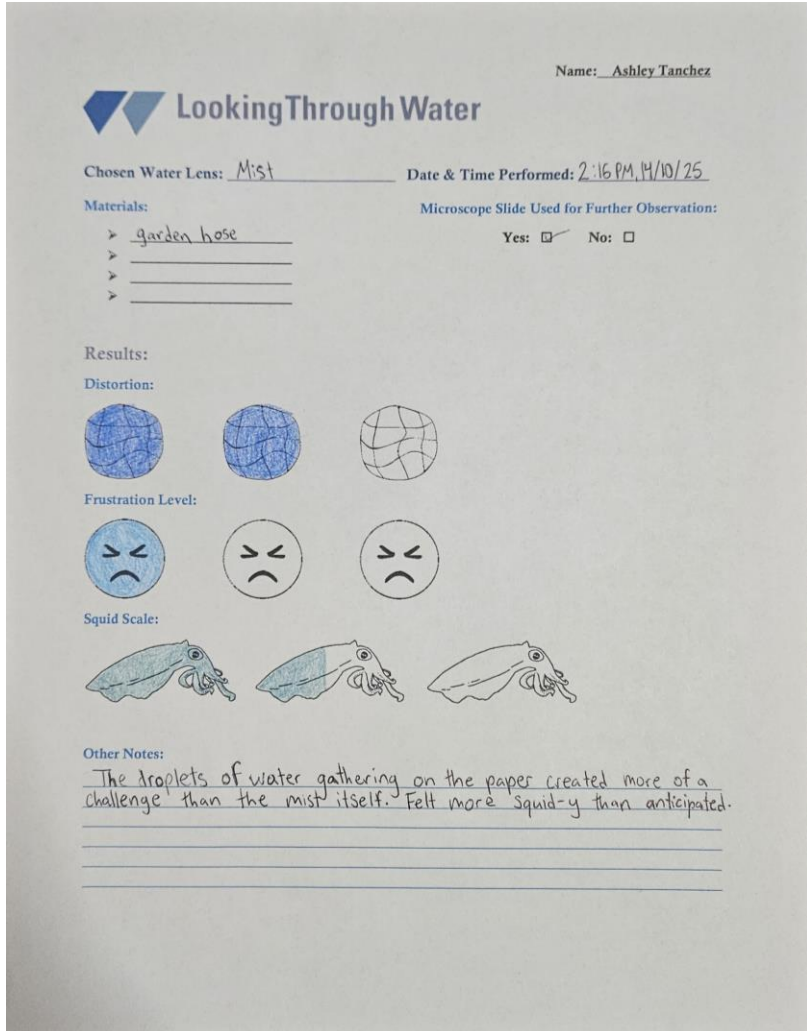 Name: Ashley Tanchez
LookingThrough Water
Chosen Water Lens: Mist
Date & Time Performed: 2:16 PM, 14/10/25
Materials:
Microscope Slide Used for Further Observation:
garden hose
Yes: No:
Results:
Distortion:
Frustration Level:
Squid Scale:
Other Notes:
The droplets of water gathering on the paper created more of a
challenge than the mist itself. Felt more squid-y than anticipated.